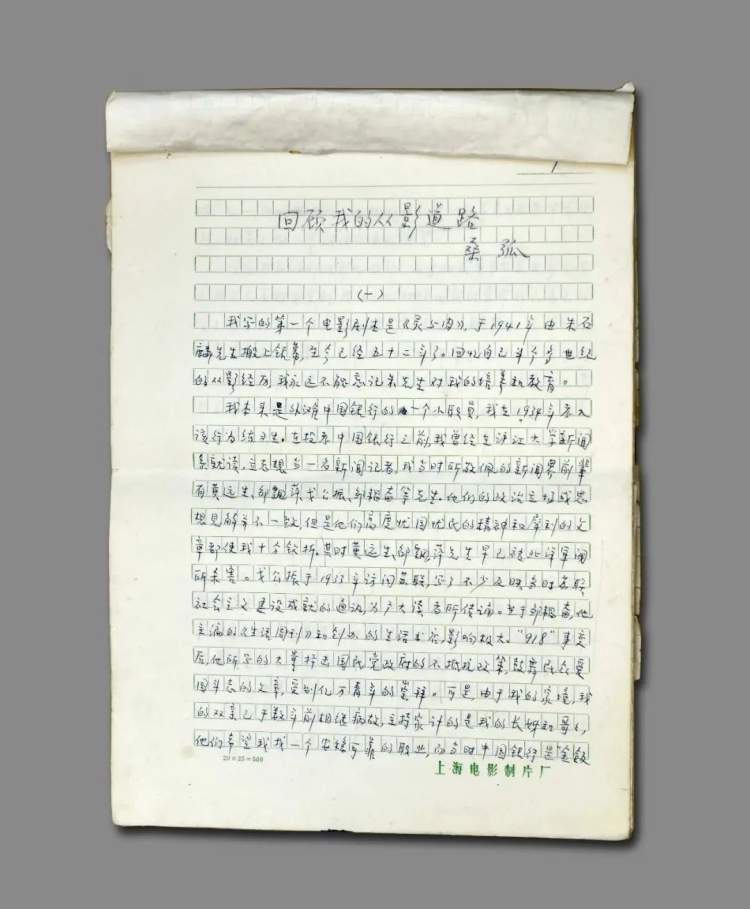 1
回顾我的从影道路
桑弧
(一)
我写的第一个电影剧本是《灵与肉》，于1941年由朱石
麟先生搬上银幕，至今已经五十二年了。回忆自己半个多世纪
的从影经历，我永远不能忘记朱先生对我的培养和教育。
我本来是外滩中国银行的一个小职员，我在1934年考入
该行为练习生。在投考中国银行之前，我曾经在沪江大学新闻
系就读，立志想当一名新闻记者，我当时所敬佩的新闻界前辈
有黄远生、邵飘萍、戈公振、邹韬奋等先生。他们的政治立场或思
想见解并不一致，但是他们忧国忧民的精神和犀利的文
章都使我十分钦折。其时黄远生、邵飘萍先生早已被北洋军阀
所杀害。戈公振于1933年访问苏联，写了不少反映当时苏联
社会主义建设成就的通讯，为广大读者所传诵。至于邹韬奋，他
主编的《生活周刊》和创办的生活书店，影响极大。“918”事变
后，他所写的大量抨击国民党政府的不抵抗政策，鼓舞民众爱
国斗志的文章，受到亿万青年的崇拜。可是，由于我的家境，我
的双亲已于数年前相继病故，主持家计的是我的长姊和哥哥，
他们希望我找一个安稳可靠的职业，而当时中国银行是金饭
20×25=500
上海电影制片厂